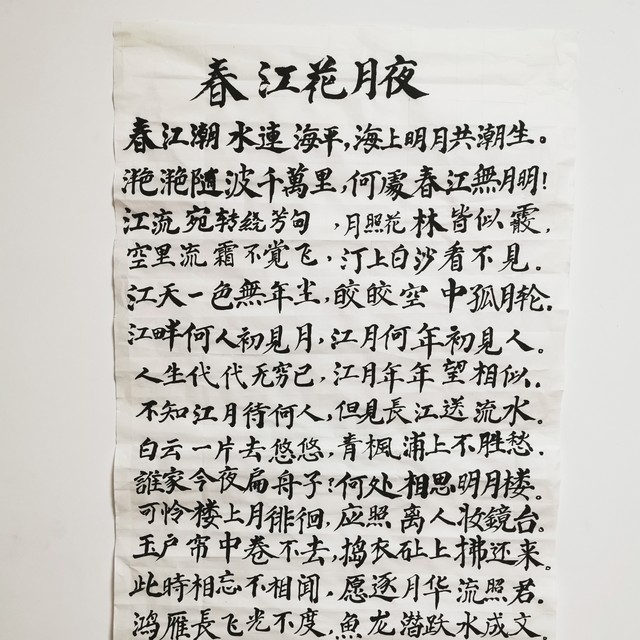 春江花月夜
春江潮水連海平,海上明月共潮生。
滟滟隨波千萬里,何處春江無月明!
江流宛转绕芳甸,月照花林皆似霰,
空里流霜不覚飞,汀上白沙看不見。
江天一色無年尘,皎皎空中孤月轮。
江畔何人初見月,江月何年初見人。
人生代代无穷已,江月年年望相似。
不知江月待何人,但見長江送流水。
白云一片去悠悠,青楓浦上不胜愁。
誰家今夜扁舟子?何处相思明月楼。
可怜楼上月徘徊,应照离人妆鏡台。
玉户帘中卷不去,捣衣砧上拂还来。
此時相忘不相聞,愿逐月华流照君。
鸿雁長飞光不度,魚龙潜跃水成文